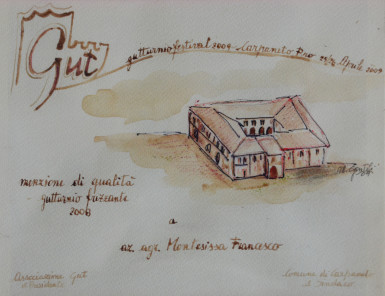 Gut
gutturnio festival 2009 Carpaneto P.no Aprile 2009
menzione di qualità
gutturnio frizzante
2008
a
az. agr. Montesissa Francesco
Associazione Gut
il Presidente
Comune di Carpaneto
il Sindaco